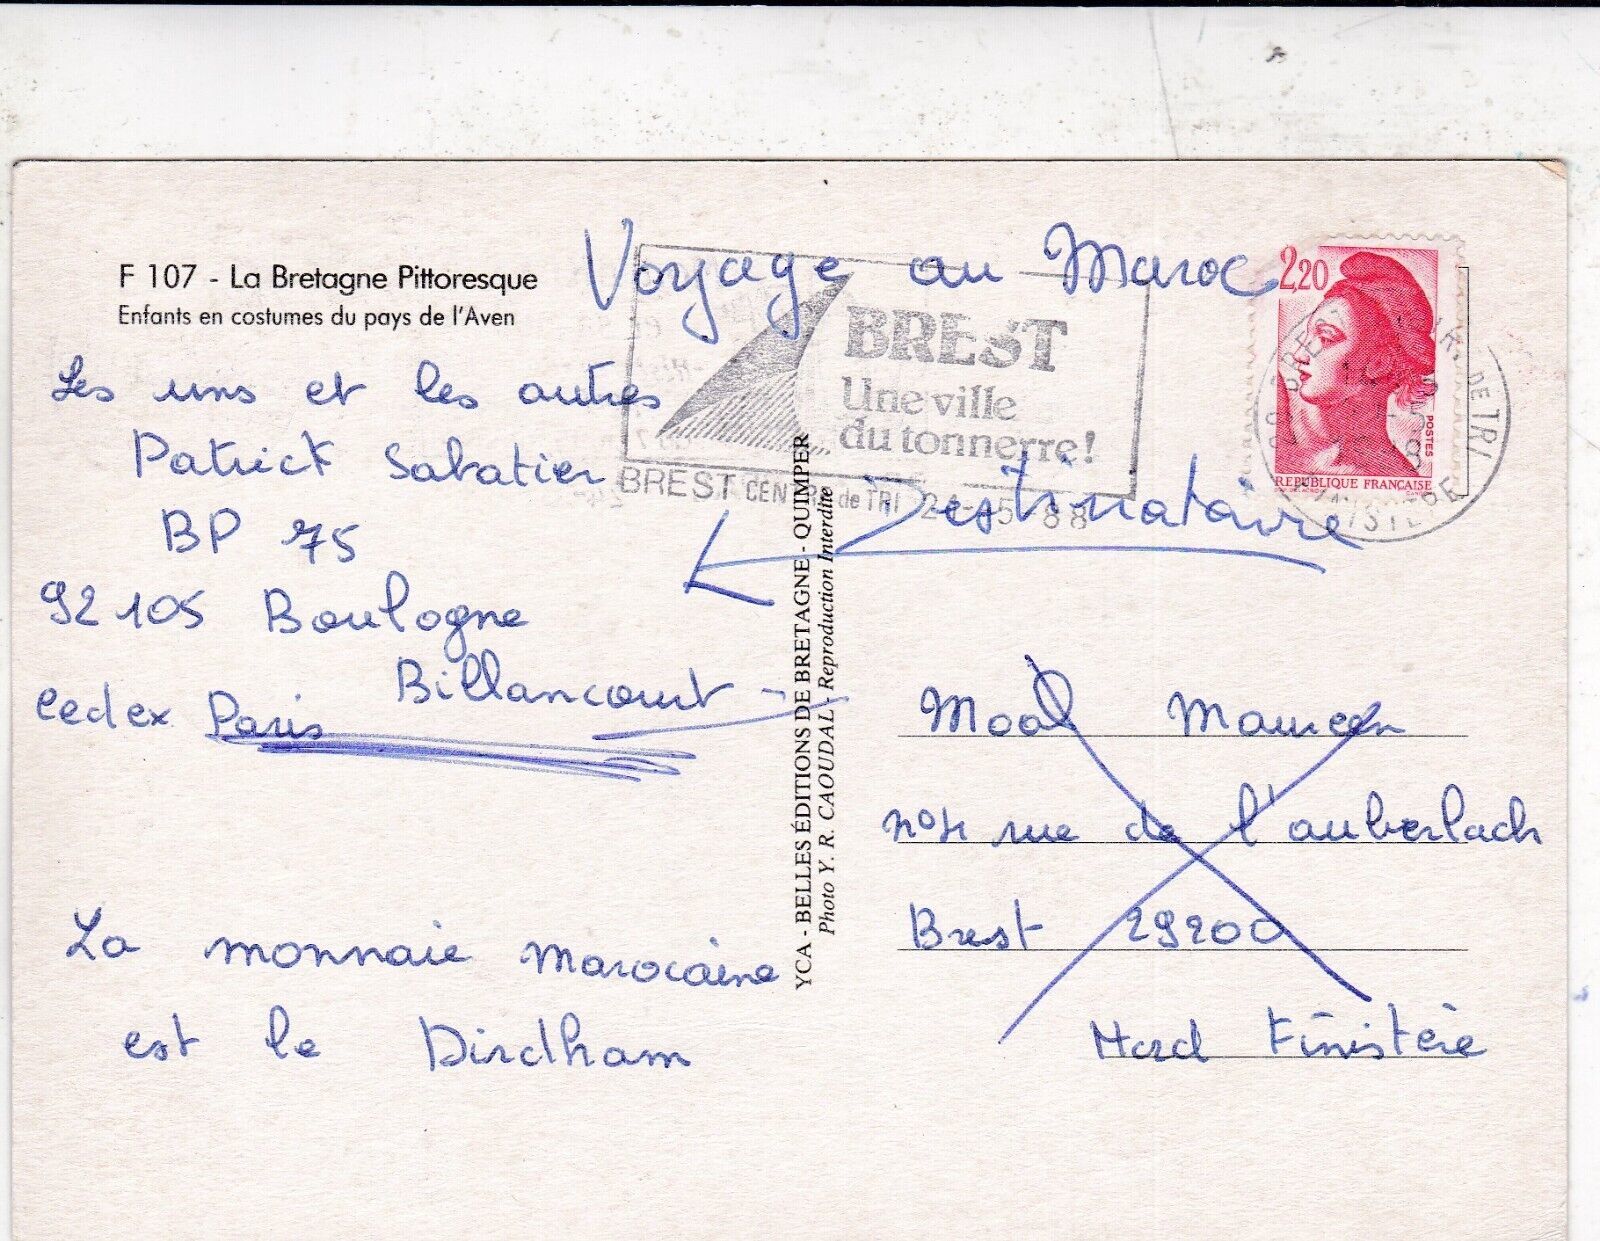 F 107 - La Bretagne Pittoresque
Enfants en costumes du pays de l'Aven
Voyage au Maroc
2,20
POSTES
REPUBLIQUE FRANÇAISE
BREST
Une ville
du tonnerre!
BREST CENTRE de TRI 24-5-88
Les uns et les autres
Patrick Sabatier
BP 75
92105 Boulogne
Billancourt -
cedex Paris
Destinataire
La monnaie marocaine
est le Dirdham
YCA - BELLES ÉDITIONS DE BRETAGNE - QUIMPER
Photo Y. R. CAOUDAL - Reproduction Interdite
Moal Maureen
rue de l'auberlach
Brest 29200
Nord Finistère